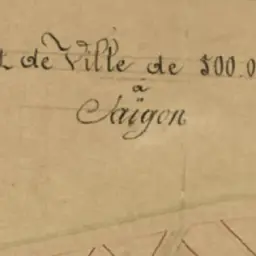 de Ville de 500.0
à
Saïgon